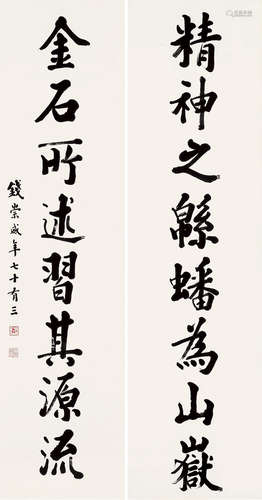 精神之緜蟠為山嶽
金石所述習其源流
錢崇威年七十有三